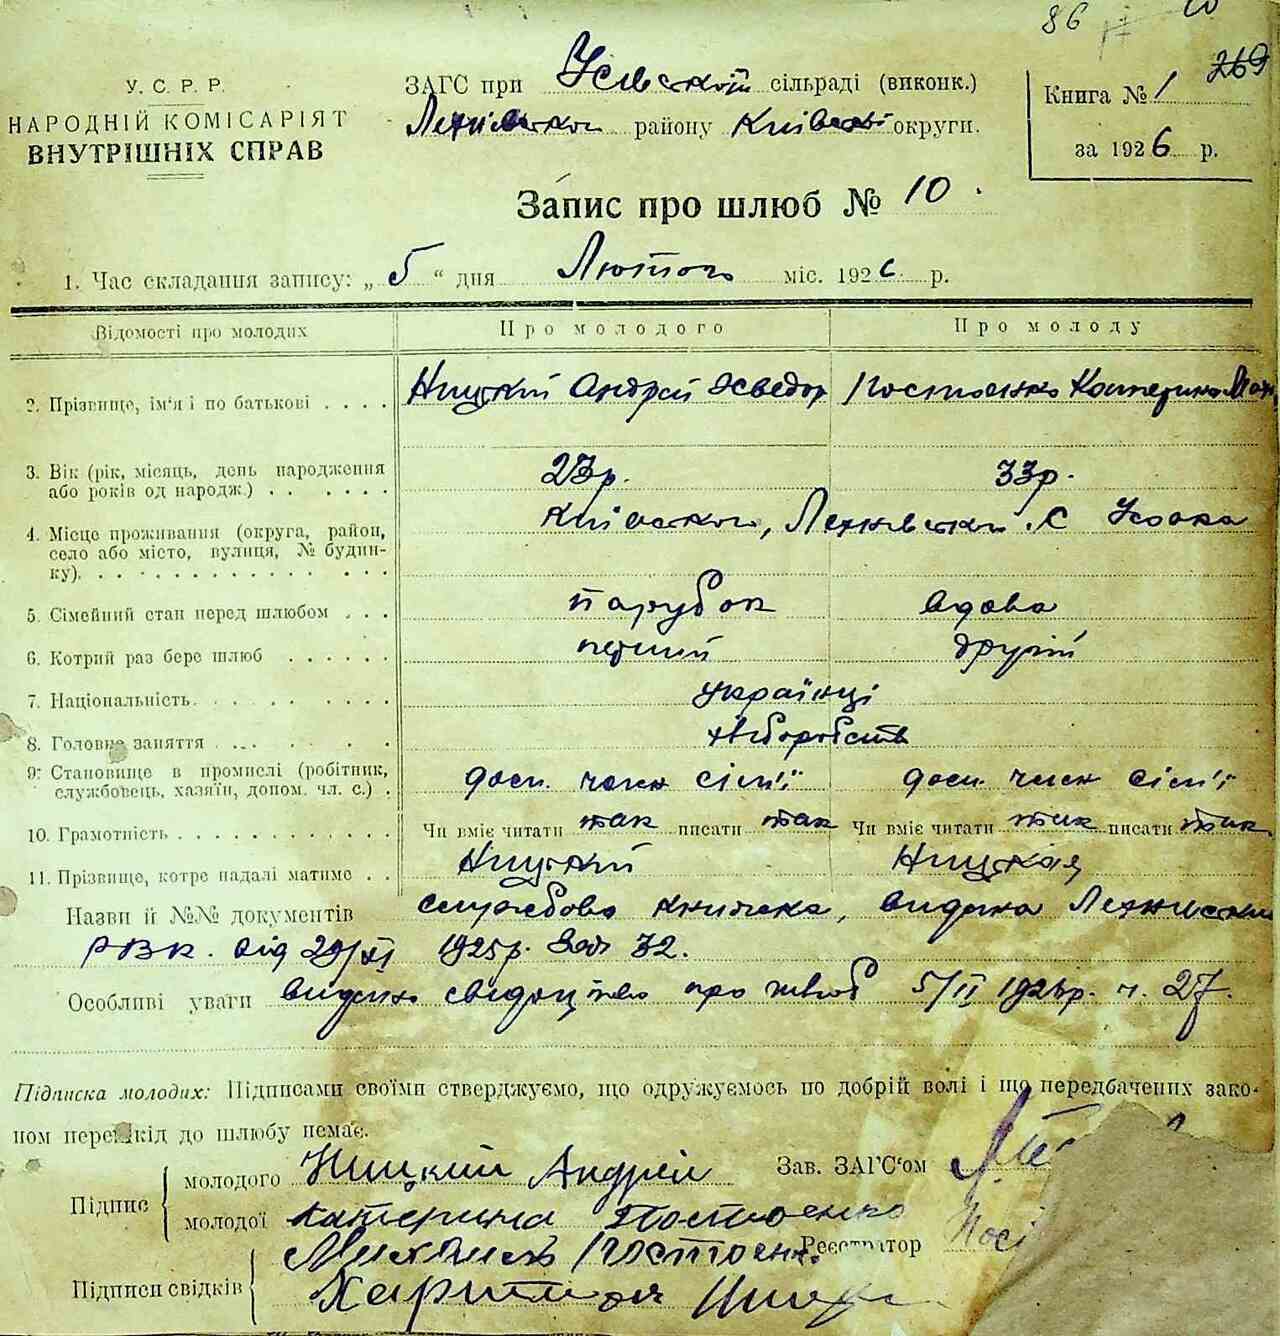 86
У. С. Р. Р.
НАРОДНІЙ КОМІСАРІЯТ
ВНУТРІШНІХ СПРАВ
ЗАГС при сільраді (виконк.)
району округи.
Книга № 1 269
за 1926 р.
Запис про шлюб № 10
1. Час складання запису: „ 5 “ дня Лютого міс. 1926 р.
Відомості про молодих Про молодого Про молоду
2. Прізвище, ім'я і по батькові . . . . Ницкий Андрей Хведор Постоенко Катерина
3. Вік (рік, місяць, день народження 23р. 33р.
або років од народж.) . . . . . . .
4. Місце проживання (округа, район,
село або місто, вулиця, № будин-
ку). . . . . . . . . . . . . .
5. Сімейний стан перед шлюбом . . . парубок вдова
6. Котрий раз бере шлюб . . . . . . перший другій
7. Національність. . . . . . . . . українці
8. Головне заняття . . . . . . хліборобств
9. Становище в промислі (робітник, доп. член сім'ї доп. член сім'ї
службовець, хазяїн, допом. чл. с.) .
10. Грамотність . . . . . . . . . . Чи вміє читати так писати так Чи вміє читати так писати так
11. Прізвище, котре надалі матиме . . Ницкий Ницкая
Назви й №№ документів службова книжка, видана
РВК. від 29/XI 1925р. 32.
Особливі уваги видано свідоцтво про шлюб 5/II 1926р. ч. 27.
Підписка молодих: Підписами своїми стверджуємо, що одружуємось по добрій волі і що передбачених зако-
ном перешкід до шлюбу немає.
Підпис молодого Ницкий Андрей Зав. ЗАГС'ом
молодої Катерина Постоенко
Реєстратор
Підписи свідків
Харитон